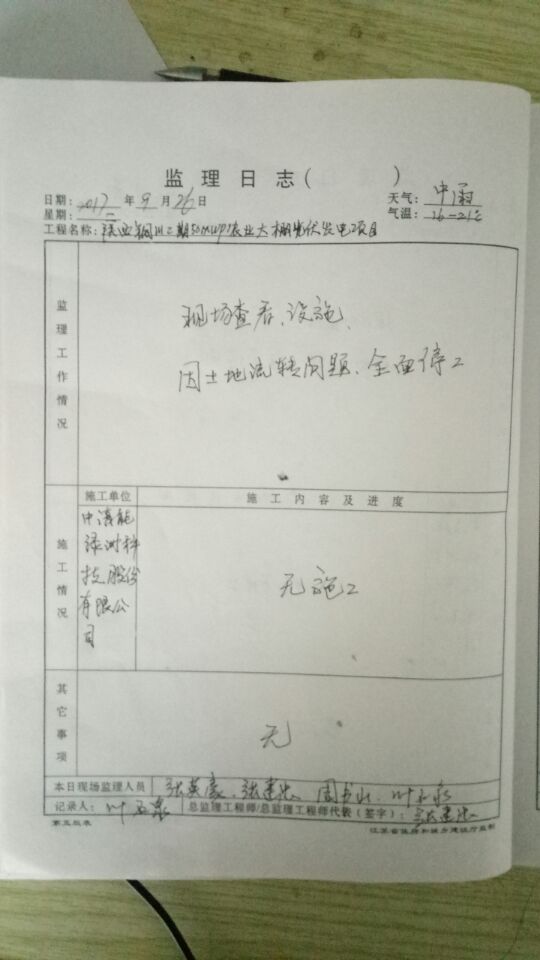 监理日志( )
日期: 2017 年 9 月 26 日
天气: 中雨
星期: 二
气温: 16-21℃
工程名称: 陕西铜川二期50MWp农业大棚光伏发电项目
监理工作情况
现场查看、设施、
因土地流转问题、全面停工
施工情况
施工单位
施工内容及进度
绿洲科
技股份
有限公
司
无施工
其它事项
无
本日现场监理人员
张英豪、张建忠、周书山、叶
记录人: 叶
总监理工程师/总监理工程师代表(签字): 张建忠
第五版表
江苏省住房和城乡建设厅监制